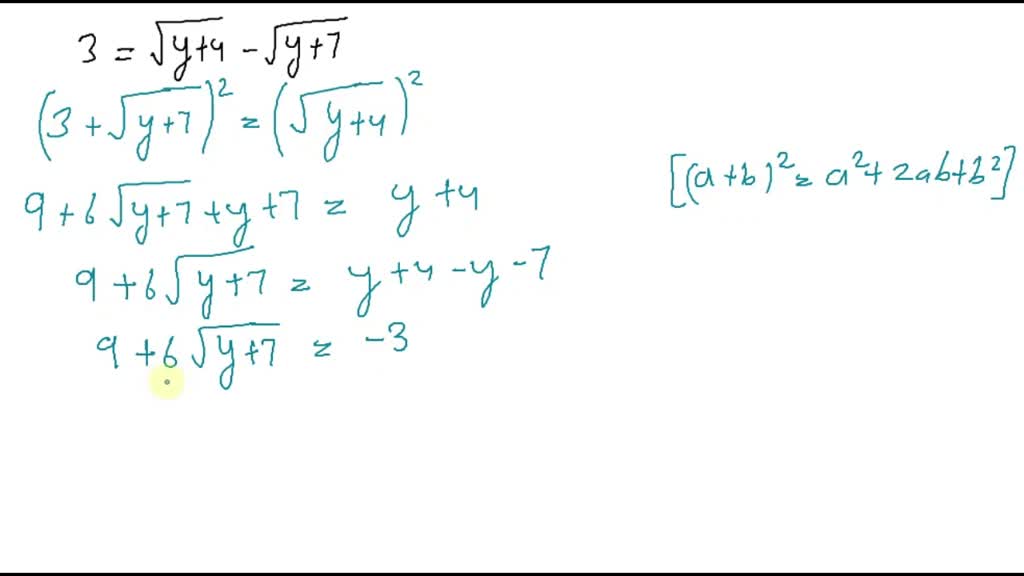 3 = √y+4 - √y+7
(3 + √y+7)² = (√y+4)²
[(a+b)² = a² + 2ab + b²]
9 + 6√y+7 + y + 7 = y + 4
9 + 6√y+7 = y + 4 - y - 7
9 + 6√y+7 = -3